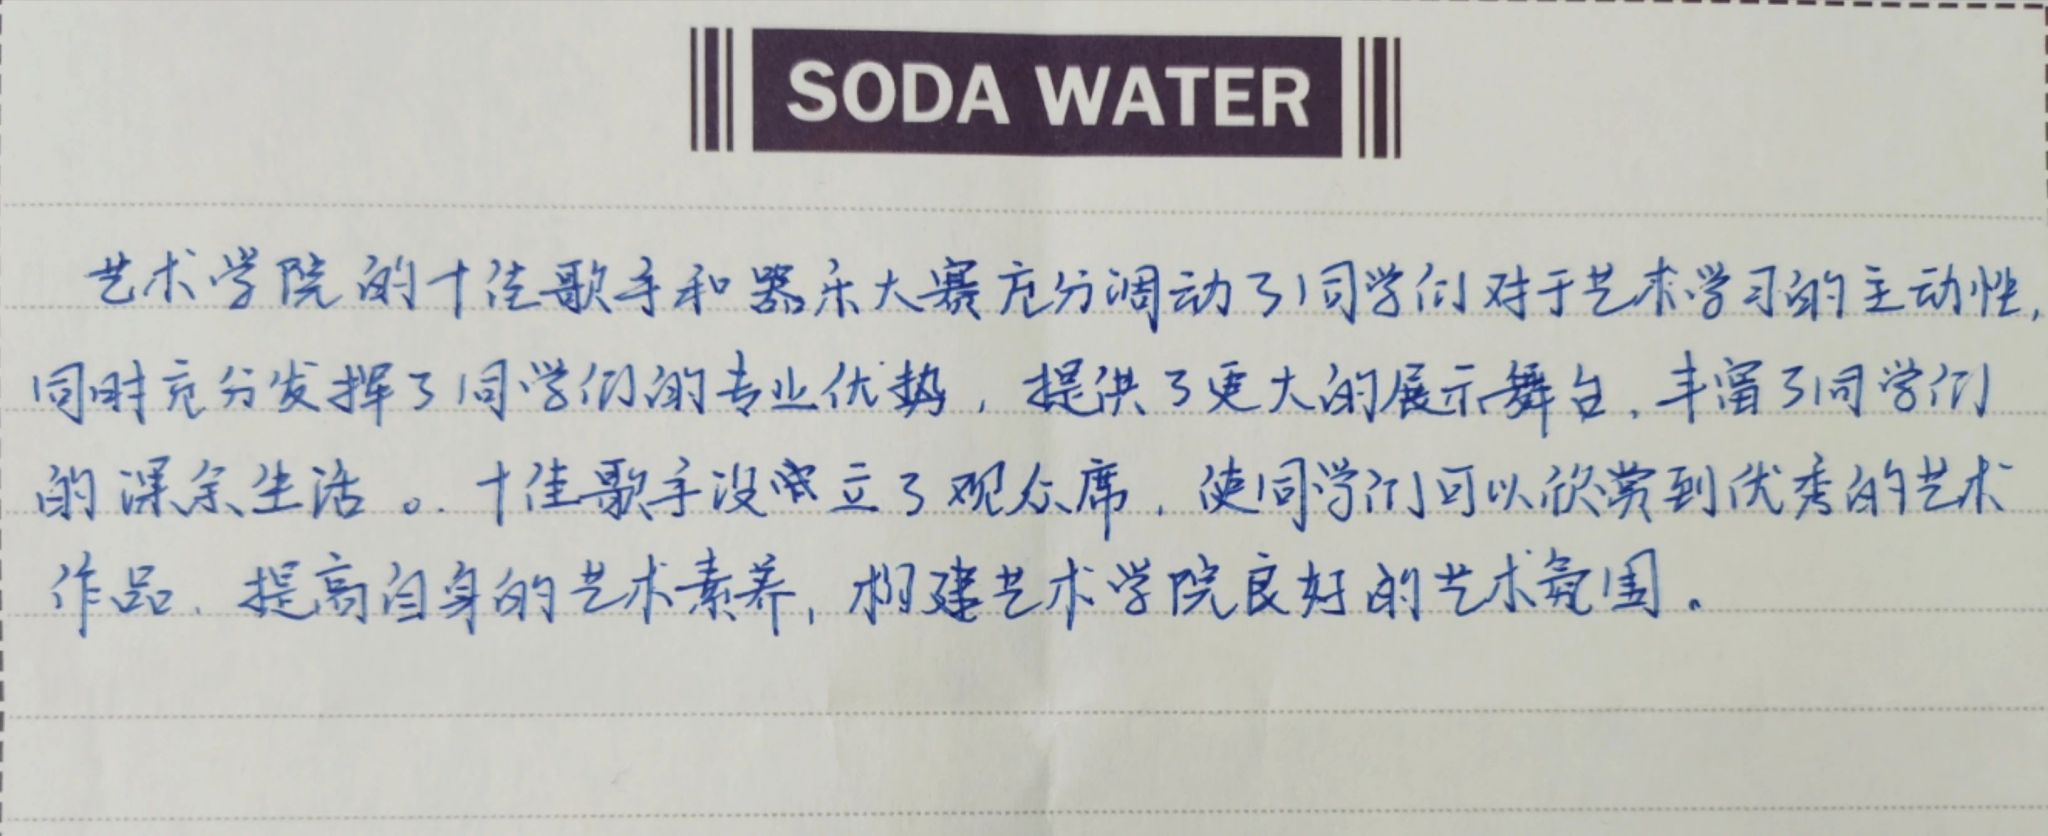 SODA WATER
艺术学院的十佳歌手和器乐大赛充分调动了同学们对于艺术学习的主动性,
同时充分发挥了同学们的专业优势,提供了更大的展示舞台,丰富了同学们
的课余生活。十佳歌手设立了观众席,使同学们可以欣赏到优秀的艺术
作品,提高自身的艺术素养,构建艺术学院良好的艺术氛围。